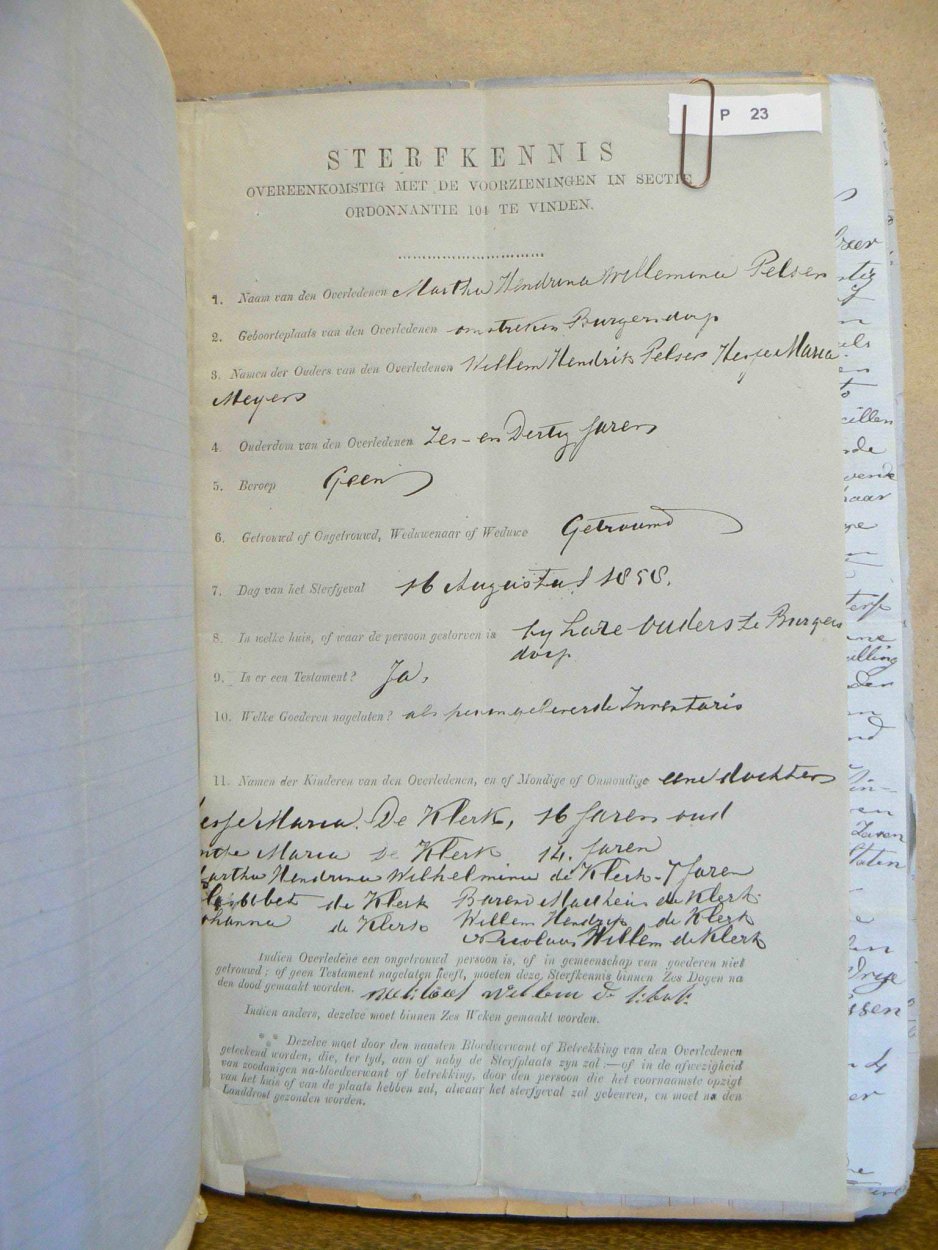 P 23
STERFKENNIS
OVEREENKOMSTIG MET DE VOORZIENINGEN IN SECTIE
ORDONNANTIE 104 TE VINDEN.
1. Naam van den Overledenen Martha Hendrina Willemina Pelser
2. Geboorteplaats van den Overledenen omstreken Burgersdorp
3. Namen der Ouders van den Overledenen Willem Hendrik Pelser Maria
Meyers
4. Ouderdom van den Overledenen Zes-en Dertig Jaren
5. Beroep Geen
6. Getrouwd of Ongetrouwd, Weduwenaar of Weduwe Getrouwd
7. Dag van het Sterfgeval 16 Augustus 1858.
8. In welke huis, of waar de persoon gestorven is by hare Ouders te Burgers
dorp
9. Is er een Testament? Ja,
10. Welke Goederen nagelaten? als Inventaris
11. Namen der Kinderen van den Overledenen, en of Mondige of Onmondige
Maria. De Klerk, 16 Jaren oud
Maria De Klerk 14. Jaren
Martha Hendrina Wilhelmina de Klerk - 7 Jaren
de Klerk Barend de Klerk
Johanna de Klerk Willem Hendrik de Klerk
Nicolaas Willem de Klerk
Indien Overledene een ongetrouwd persoon is, of in gemeenschap van goederen niet
getrouwd; of geen Testament nagelaten heeft, moeten deze Sterfkennis binnen Zes Dagen na
den dood gemaakt worden. Willem
Indien anders, dezelve moet binnen Zes Weken gemaakt worden.
Dezelve moet door den naasten Bloedverwant of Betrekking van den Overledenen
geteekend worden, die, ter tyd, aan of naby de Sterfplaats zyn zal;—of in de afwezigheid
van zoodanigen na-bloedverwant of betrekking, door den persoon die het voornaamste opzigt
van het huis of van de plaats hebben zal, alwaar het sterfgeval zal gebeuren, en moet na den
Landdrost gezonden worden.